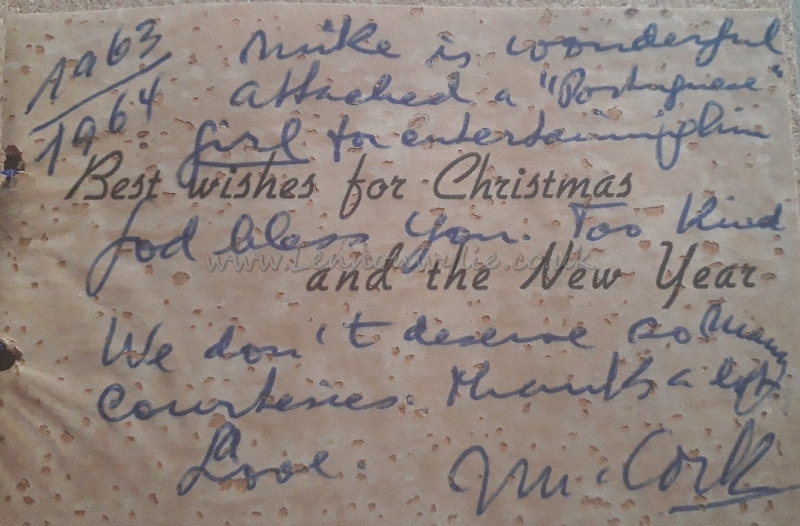 1963
1964
Mike is wonderful
attached a "Portuguese"
girl for entertaining him
Best wishes for Christmas
God bless you. Too Kind
www.Lennonwylie.co.uk
and the New Year
We don't deserve so many
courtesies. Thanks a lot
Love.